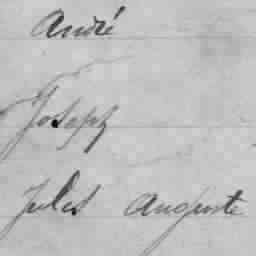 André
Joseph
Jules Auguste